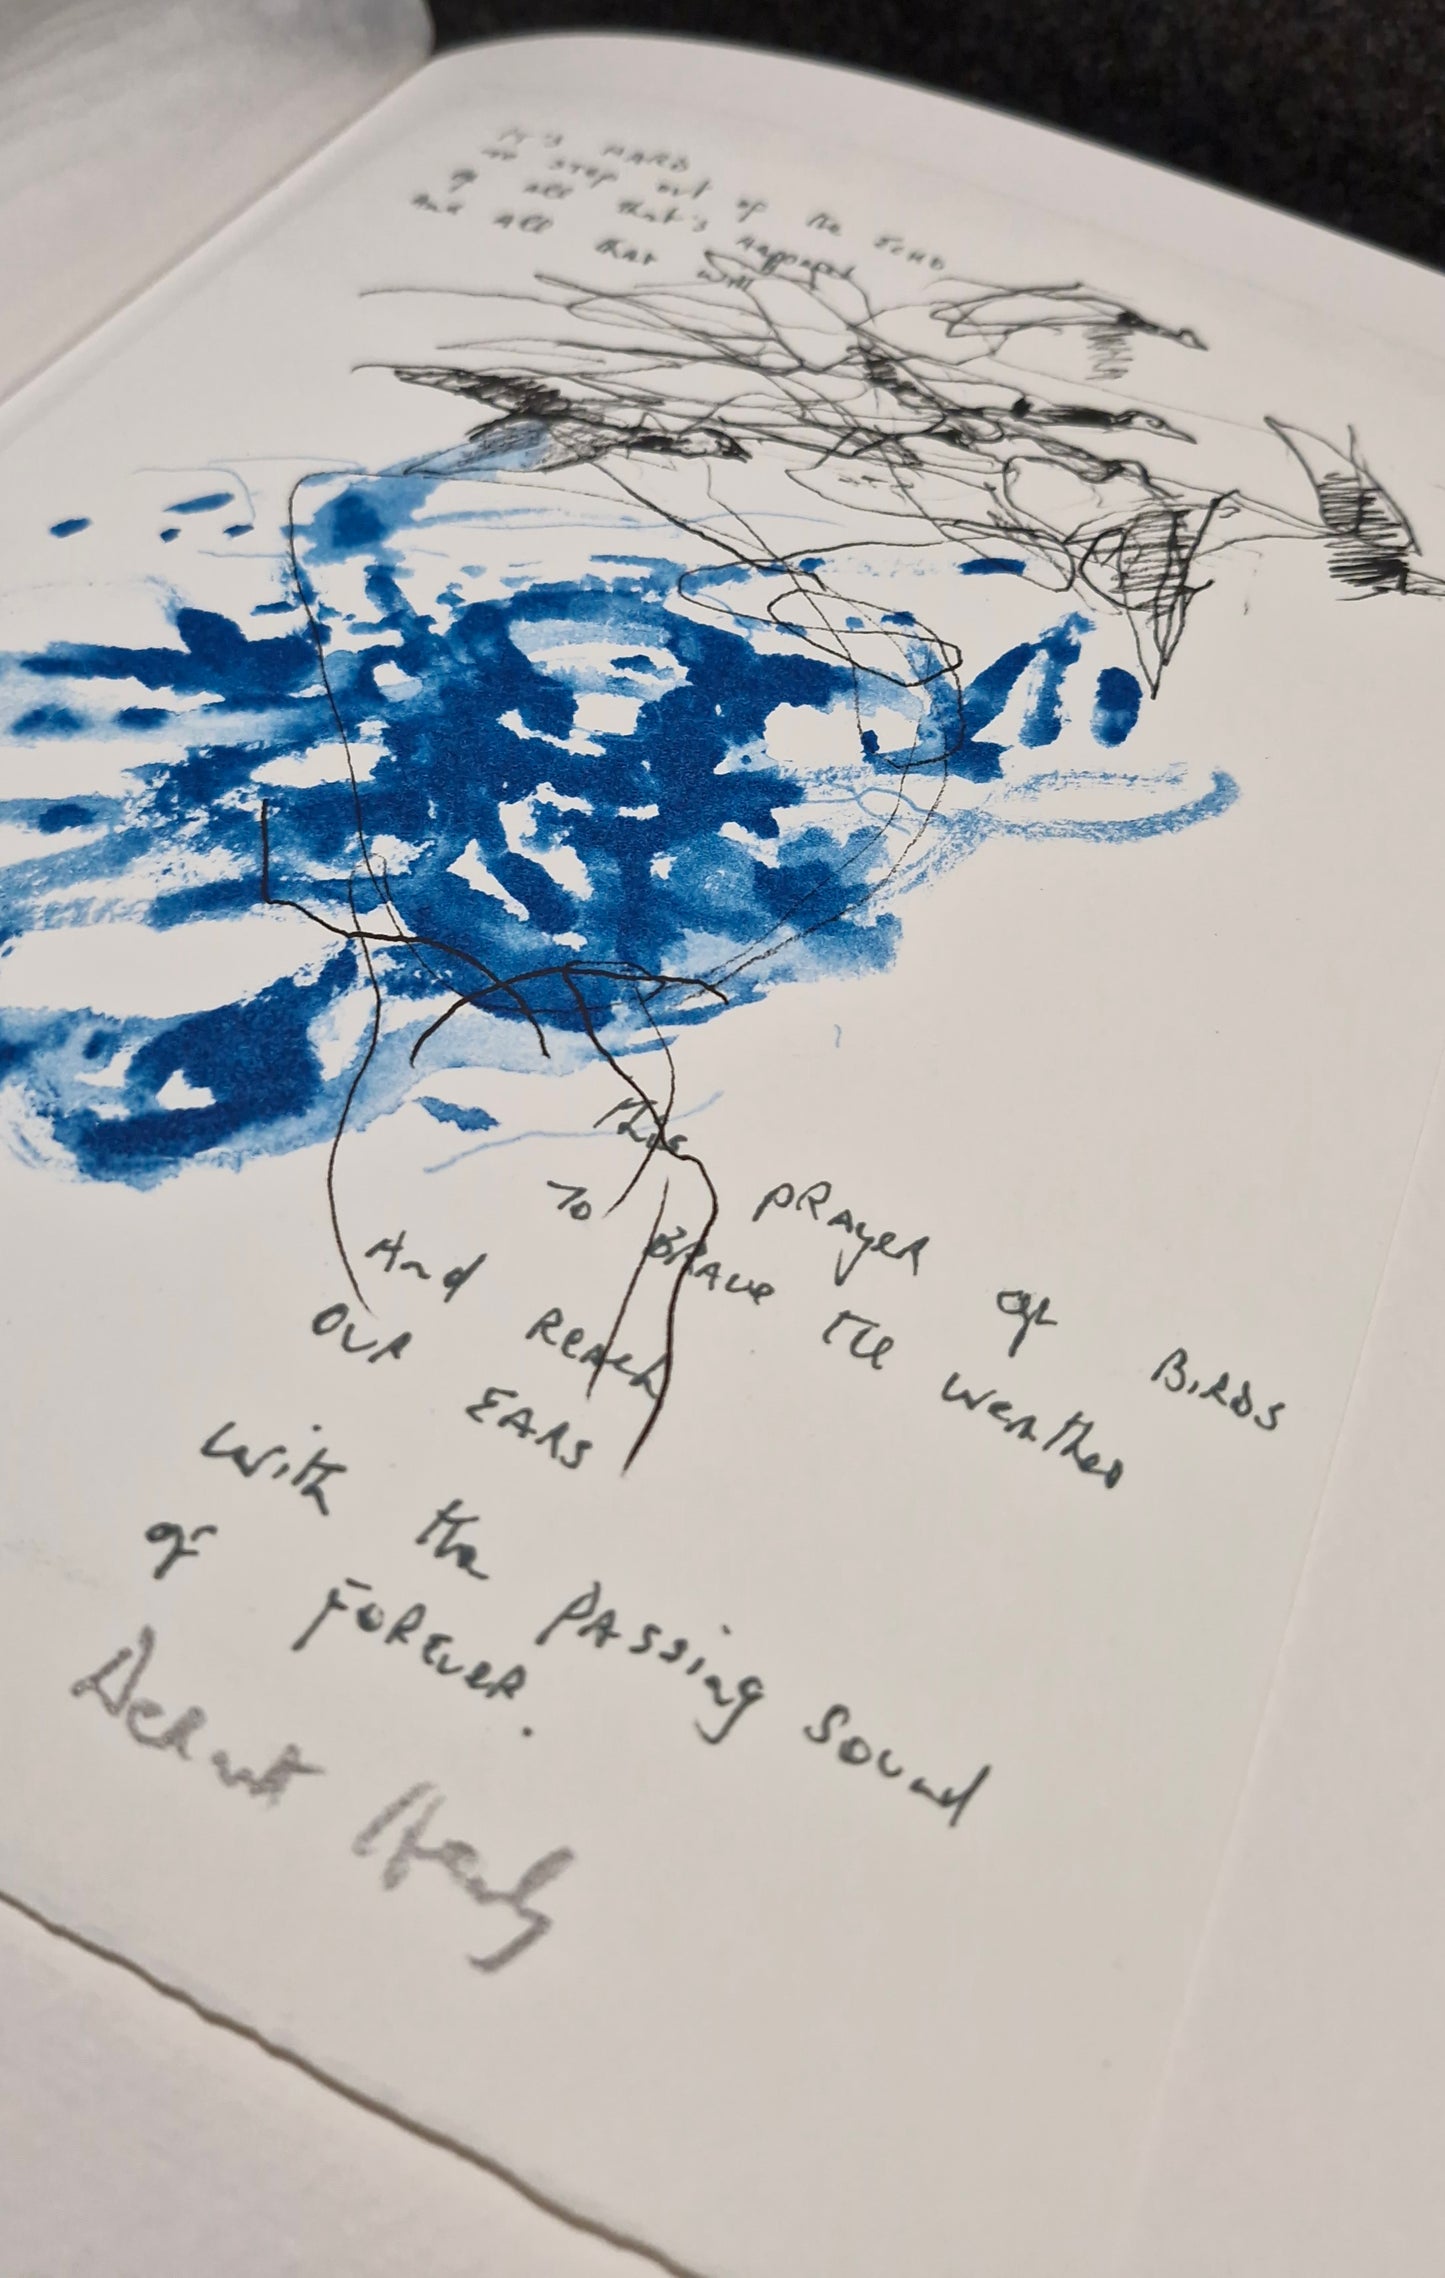 It's HARD
to STEP out of the ECHO
of all that's happened
and all that will
This PRAyER of BIRDS
To BRAVE the weather
And REACH
OUR EARS
with the PASSING SOUND
of FOREVER.